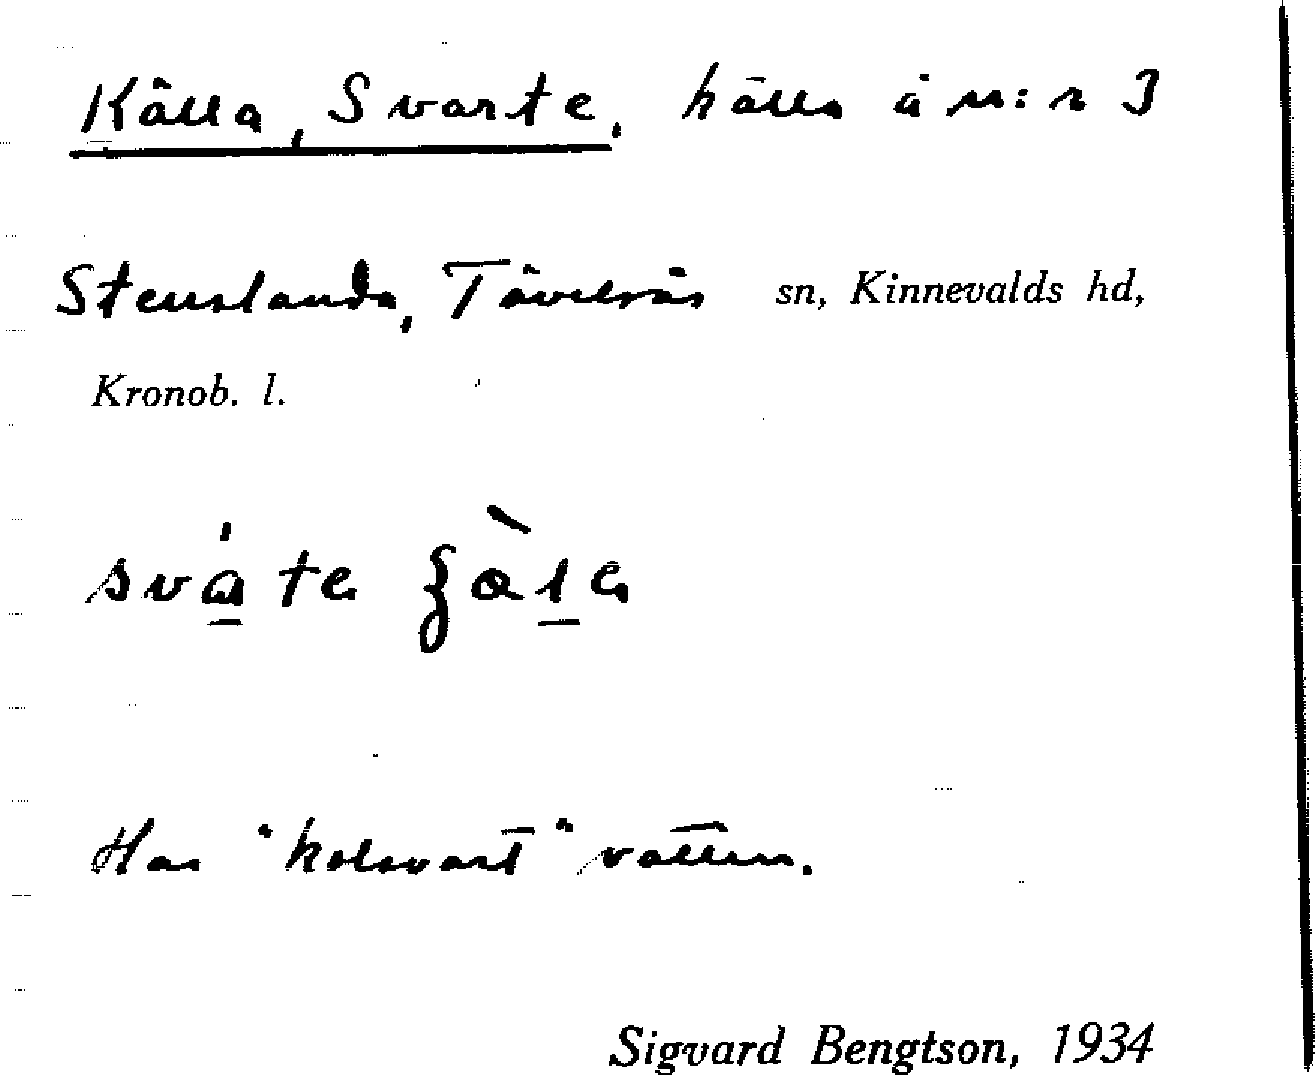 Källa, Svarte, källa å n:r 3
Stenslanda, Tävelsås sn, Kinnevalds hd,
Kronob. l.
Har "kolsvart" vatten.
Sigvard Bengtson, 1934